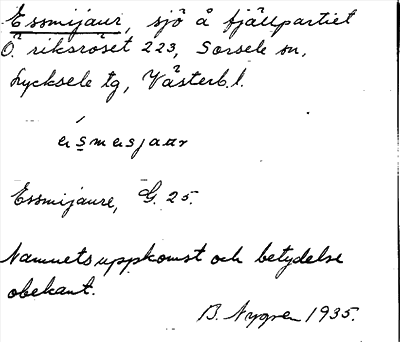 Essmijaur, sjö å fjällpartiet
Ö. riksröset 223, Sorsele sn,
Lycksele tg, Västerb. l.
ɛsmɛsjaur
Essmijaure, G. 25.
Namnets uppkomst och betydelse
obekant.
B. Nygren 1935.